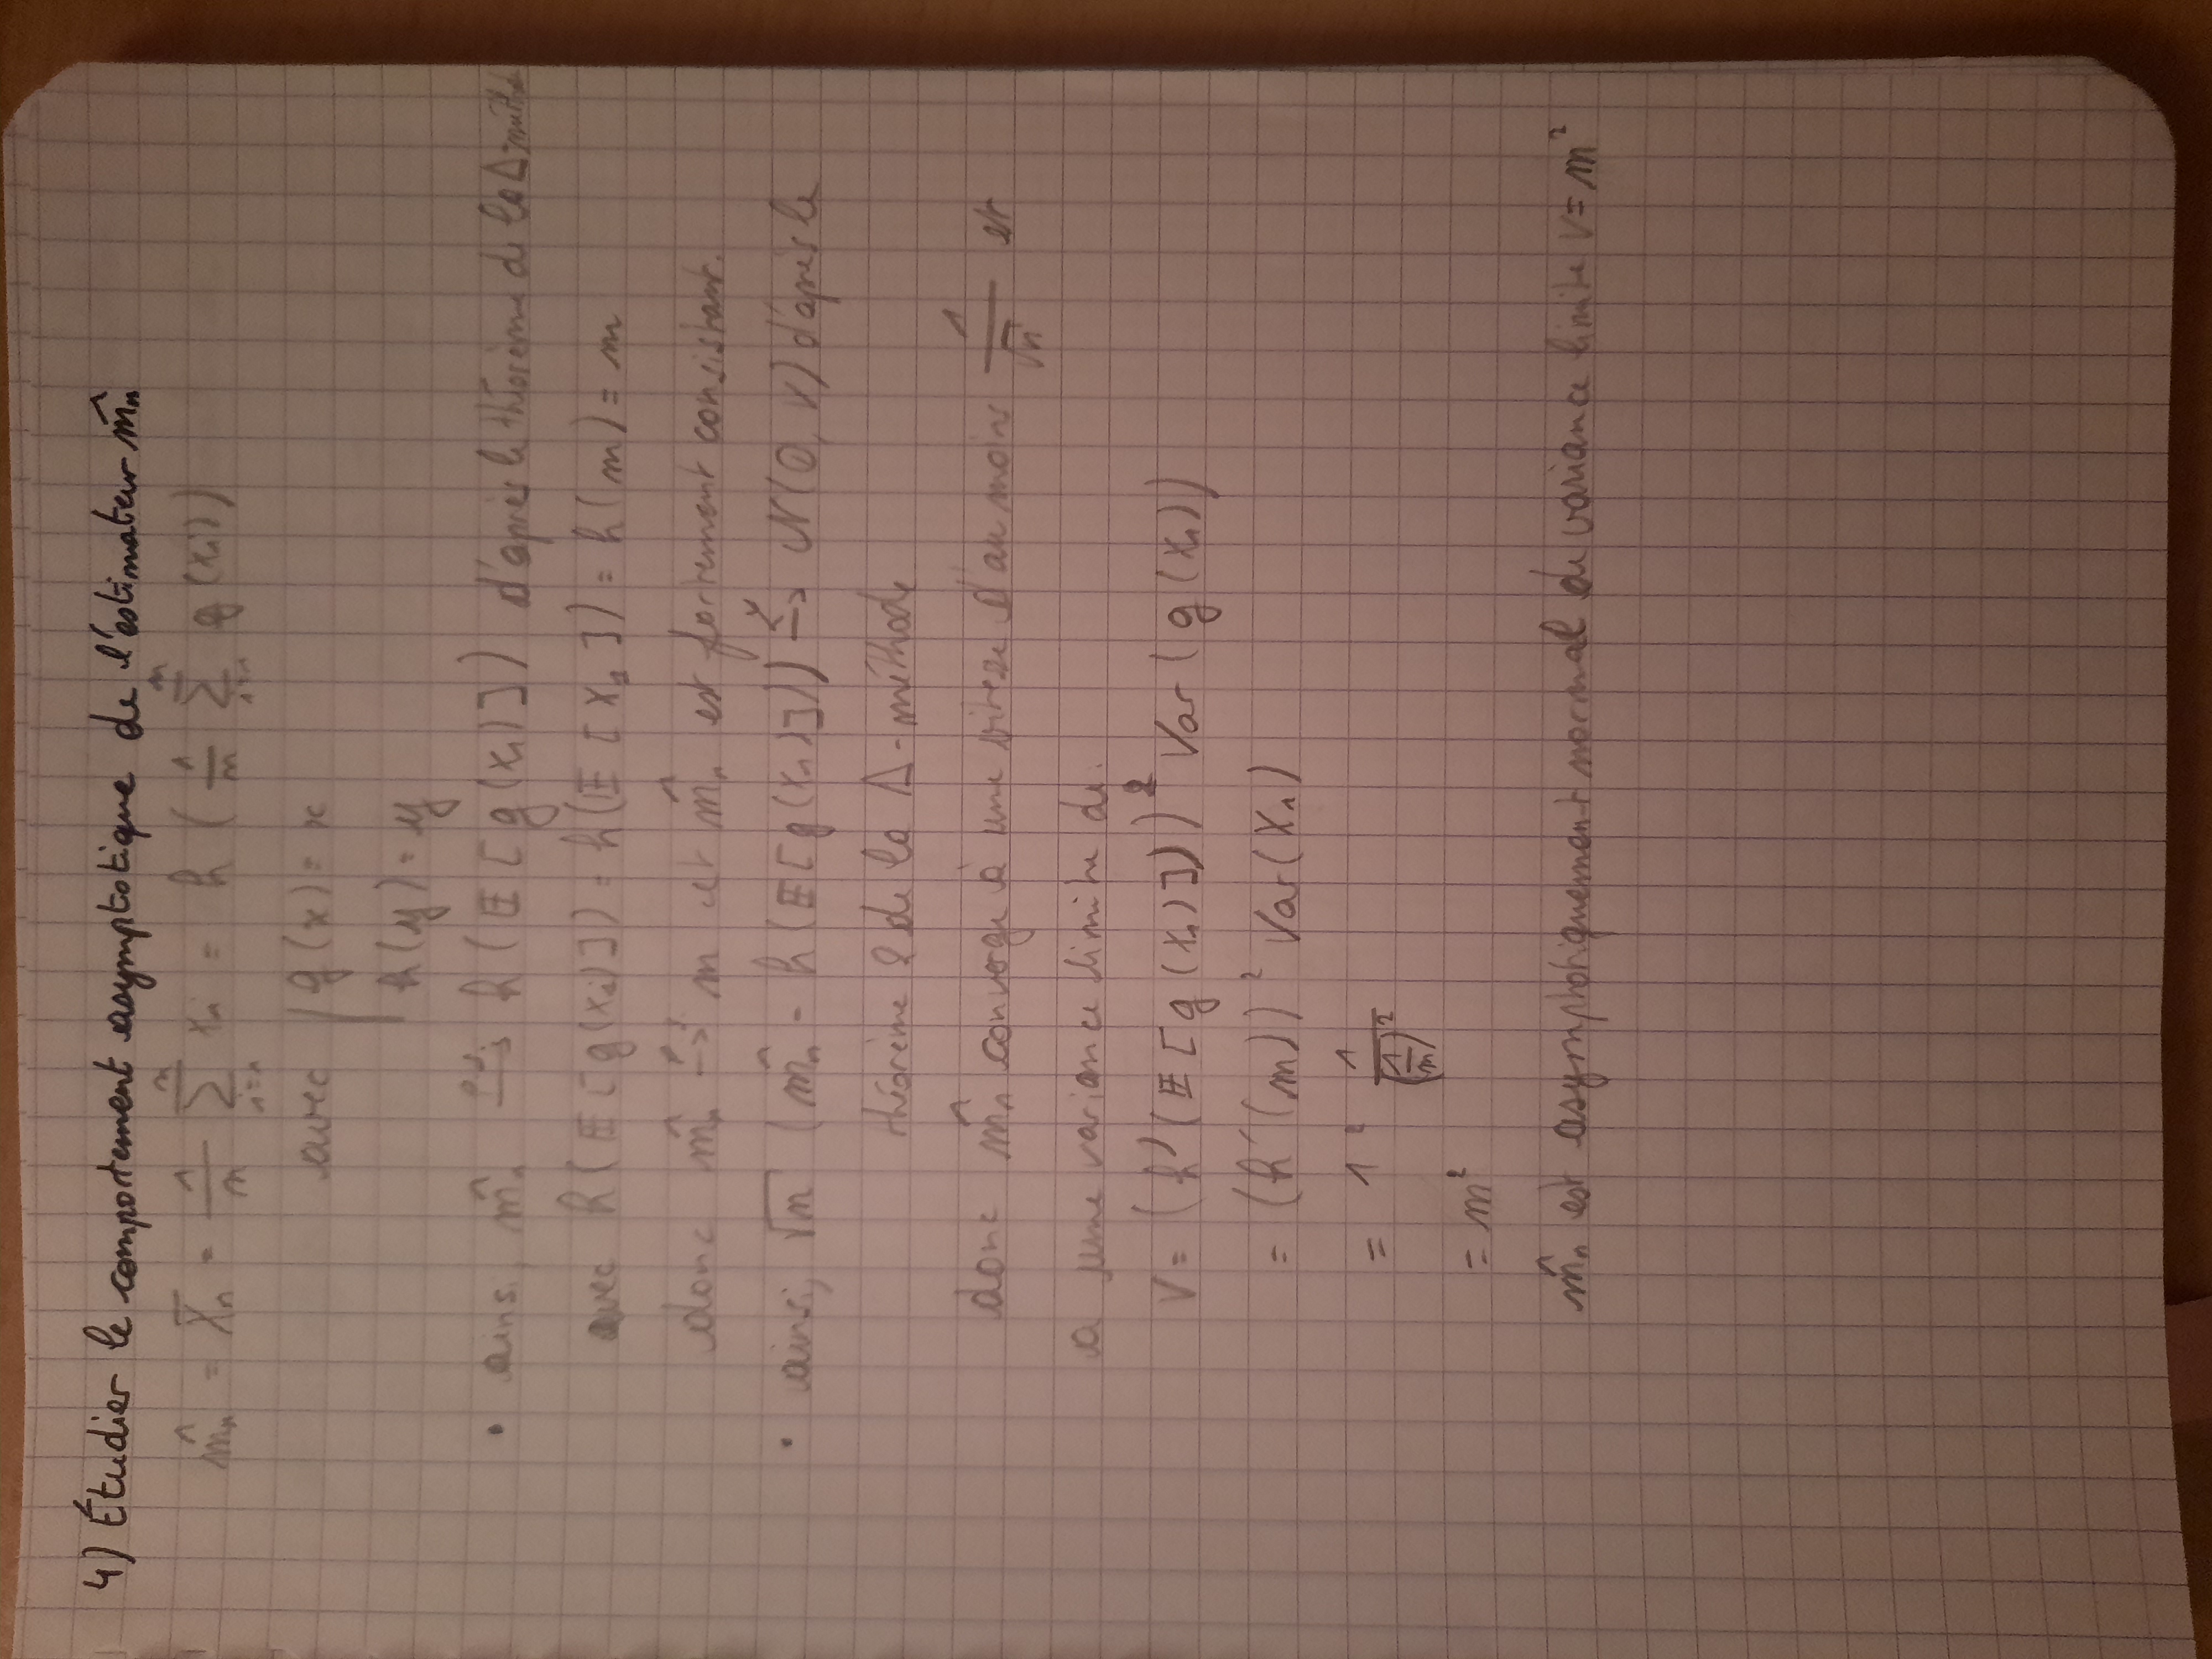 4) Étudier le comportement asymptotique de l'estimateur m̂ₙ
m̂ₙ = X̄ₙ = 1/n ∑ᵢ₌₁ⁿ Xᵢ = h ( 1/n ∑ᵢ₌₁ⁿ g(Xᵢ) )
avec | g(x) = x
h(y) = y
• ainsi, m̂ₙ →ᵖ·ˢ h ( 𝔼 [ g(X₁) ] ) d'après le théorème de la Δ-méthode
avec h( 𝔼 [ g(X₁) ] ) = h( 𝔼 [ X₁ ] ) = h(m) = m
donc m̂ₙ →ᵖ·ˢ m et m̂ₙ est fortement consistant.
• ainsi, √n ( m̂ₙ - h ( 𝔼 [ g(X₁) ] ) ) →^ℒ 𝒩(0, V) d'après le
théorème 2 de la Δ-méthode
donc m̂ₙ converge à une vitesse d'au moins 1/√n et
a une variance limite de :
V = ( h' ( 𝔼 [ g(X₁) ] ) )² Var ( g(X₁) )
= ( h' (m) )² Var(X₁)
= 1² 1/(1/m)²
= m²
m̂ₙ est asymptotiquement normal de variance limite V = m²